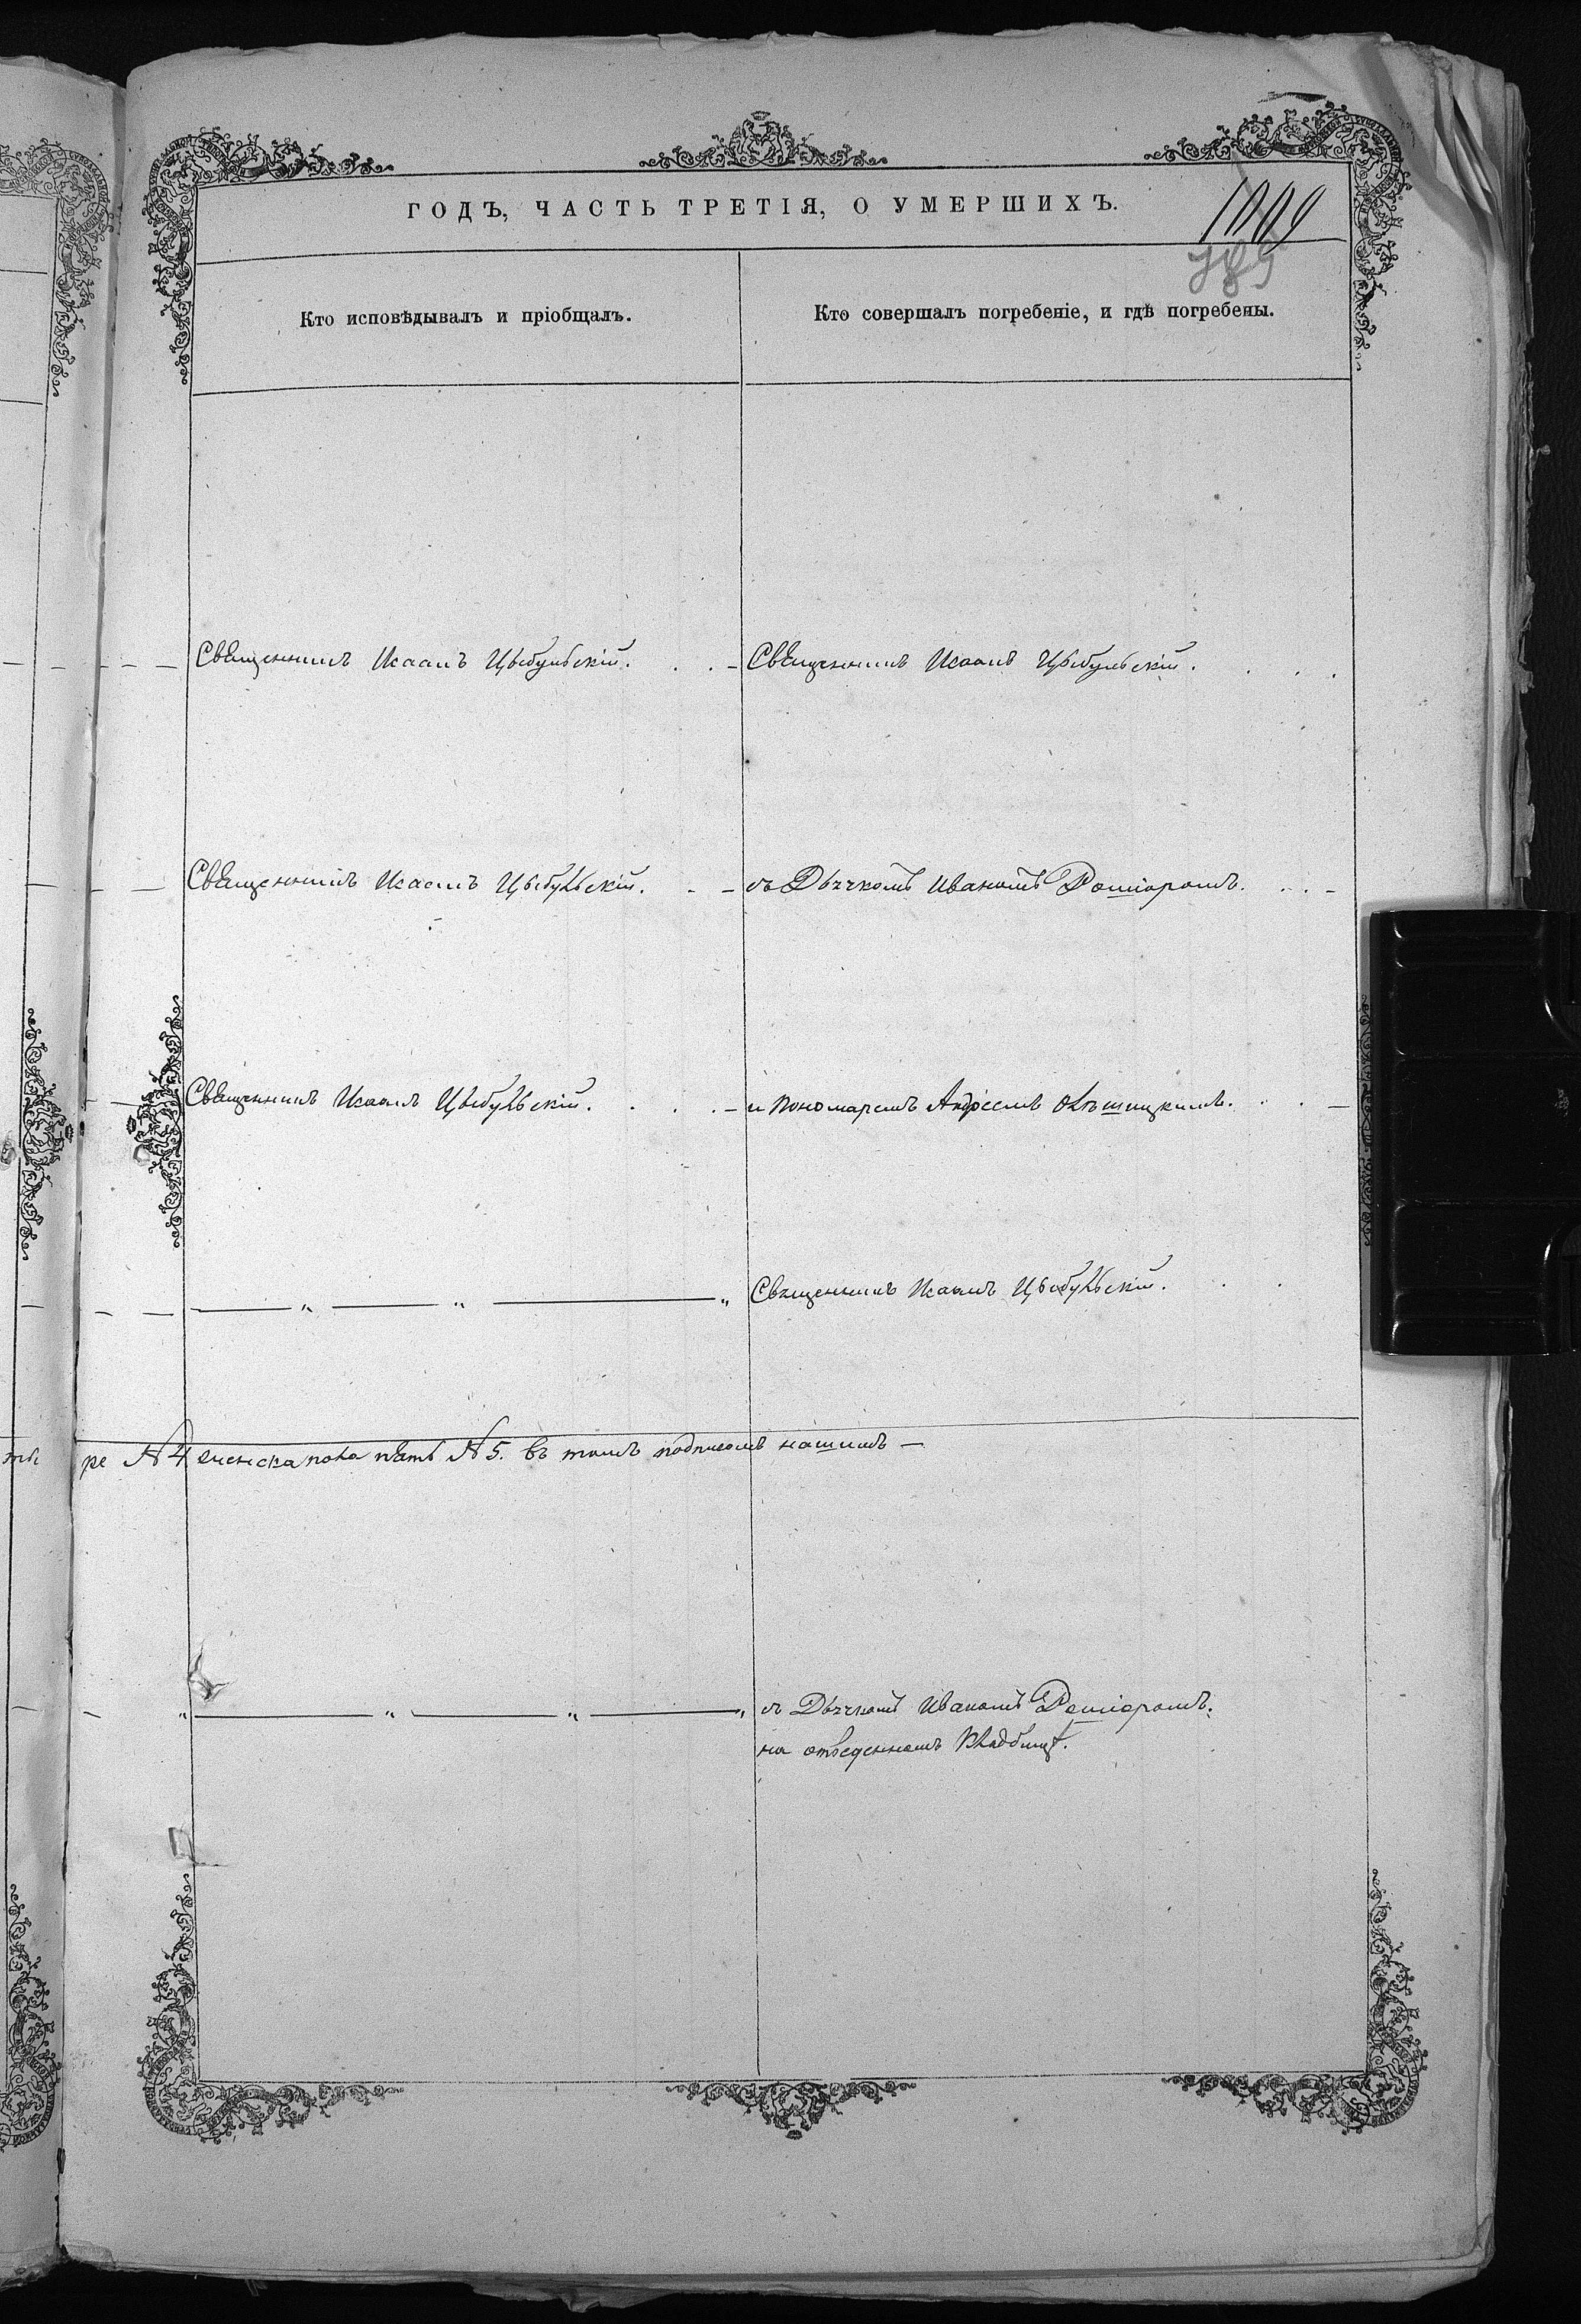 ГОДЪ, ЧАСТЬ ТРЕТІЯ, О УМЕРШИХЪ.
1009
789
Кто исповѣдывалъ и пріобщалъ.
Кто совершалъ погребеніе, и гдѣ погребены.
Священникъ Исаакъ Цыбульскій.
Священникъ Исаакъ Цыбульскій.
Священникъ Исаакъ Цыбульскій.
съ Дьячкомъ Иваномъ
Священникъ Исаакъ Цыбульскій.
и пономаремъ Андреемъ
Священникъ Исаакъ Цыбульскій.
ре № 4 женска пола пять № 5. въ томъ подписомъ нашимъ —
съ Дьячкомъ Иваномъ
на отведенномъ Кладбищѣ.